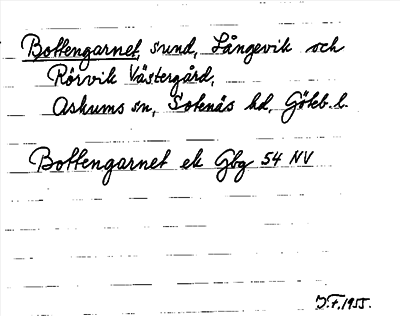 Bottengarnet, sund, Långevik och
Rörvik Västergård,
Askums sn, Sotenäs hd, Göteb. l.
Bottengarnet ek Gbg 54 NV
J.F. 1955.